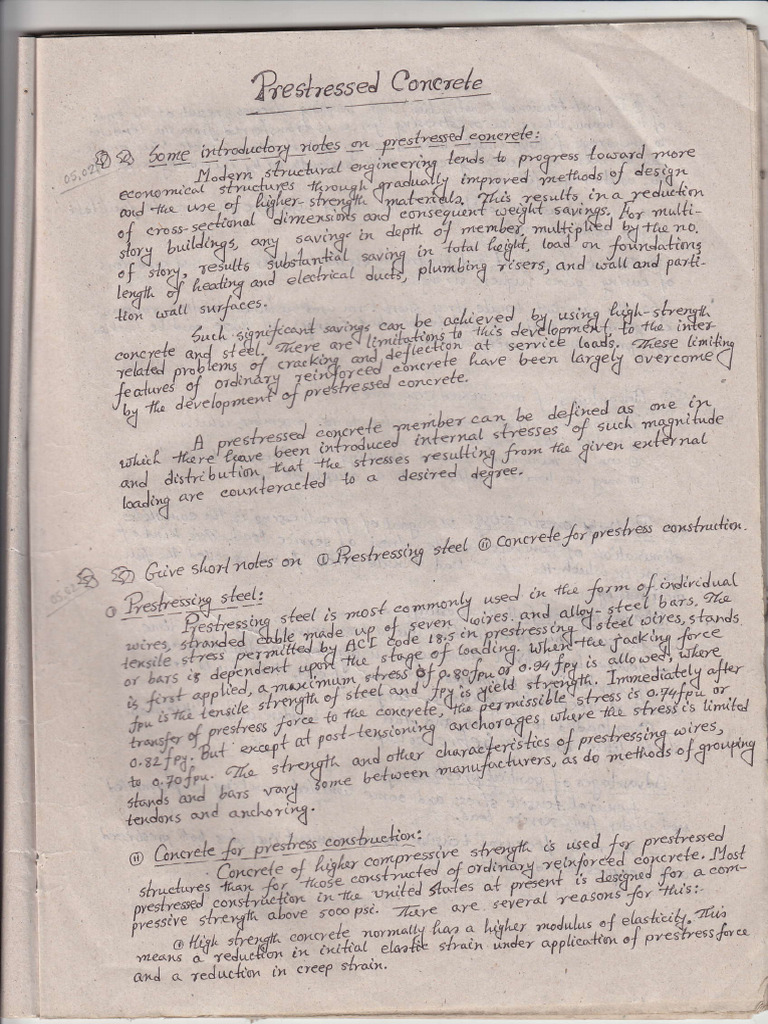 Prestressed Concrete
Some introductory notes on prestressed concrete:
Modern structural engineering tends to progress toward more
economical structures through gradually improved methods of design
and the use of higher-strength materials. This results in a reduction
of cross-sectional dimensions and consequent weight savings. For multi-
story buildings, any savings in depth of member, multiplied by the no.
of story, results substantial saving in total height, load on foundations
length of heating and electrical ducts, plumbing risers, and wall and parti-
tion wall surfaces.
Such significant savings can be achieved by using high-strength
concrete and steel. There are limitations to this development, to the inter-
related problems of cracking and deflection at service loads. These limiting
features of ordinary reinforced concrete have been largely overcome
by the development of prestressed concrete.
A prestressed concrete member can be defined as one in
which there have been introduced internal stresses of such magnitude
and distribution that the stresses resulting from the given external
loading are counteracted to a desired degree.
Give short notes on (i) Prestressing steel (ii) Concrete for prestress construction.
(i) Prestressing steel:
Prestressing steel is most commonly used in the form of individual
wires, stranded cable made up of seven wires and alloy-steel bars. The
tensile stress permitted by ACI code 18.5 in prestressing steel wires, stands
or bars is dependent upon the stage of loading. When the jacking force
is first applied, a maximum stress of 0.80fpu or 0.94 fpy is allowed, where
fpu is the tensile strength of steel and fpy is yield strength. Immediately after
transfer of prestress force to the concrete, the permissible stress is 0.74fpu or
0.82fpy. But except at post-tensioning anchorages where the stress is limited
to 0.70fpu. The strength and other characteristics of prestressing wires,
stands and bars vary some between manufacturers, as do methods of grouping
tendons and anchoring.
(ii) Concrete for prestress construction:
Concrete of higher compressive strength is used for prestressed
structures than for those constructed of ordinary reinforced concrete. Most
prestressed construction in the United States at present is designed for a com-
pressive strength above 5000 psi. There are several reasons for this:-
High strength concrete normally has a higher modulus of elasticity. This
means a reduction in initial elastic strain under application of prestress force
and a reduction in creep strain.